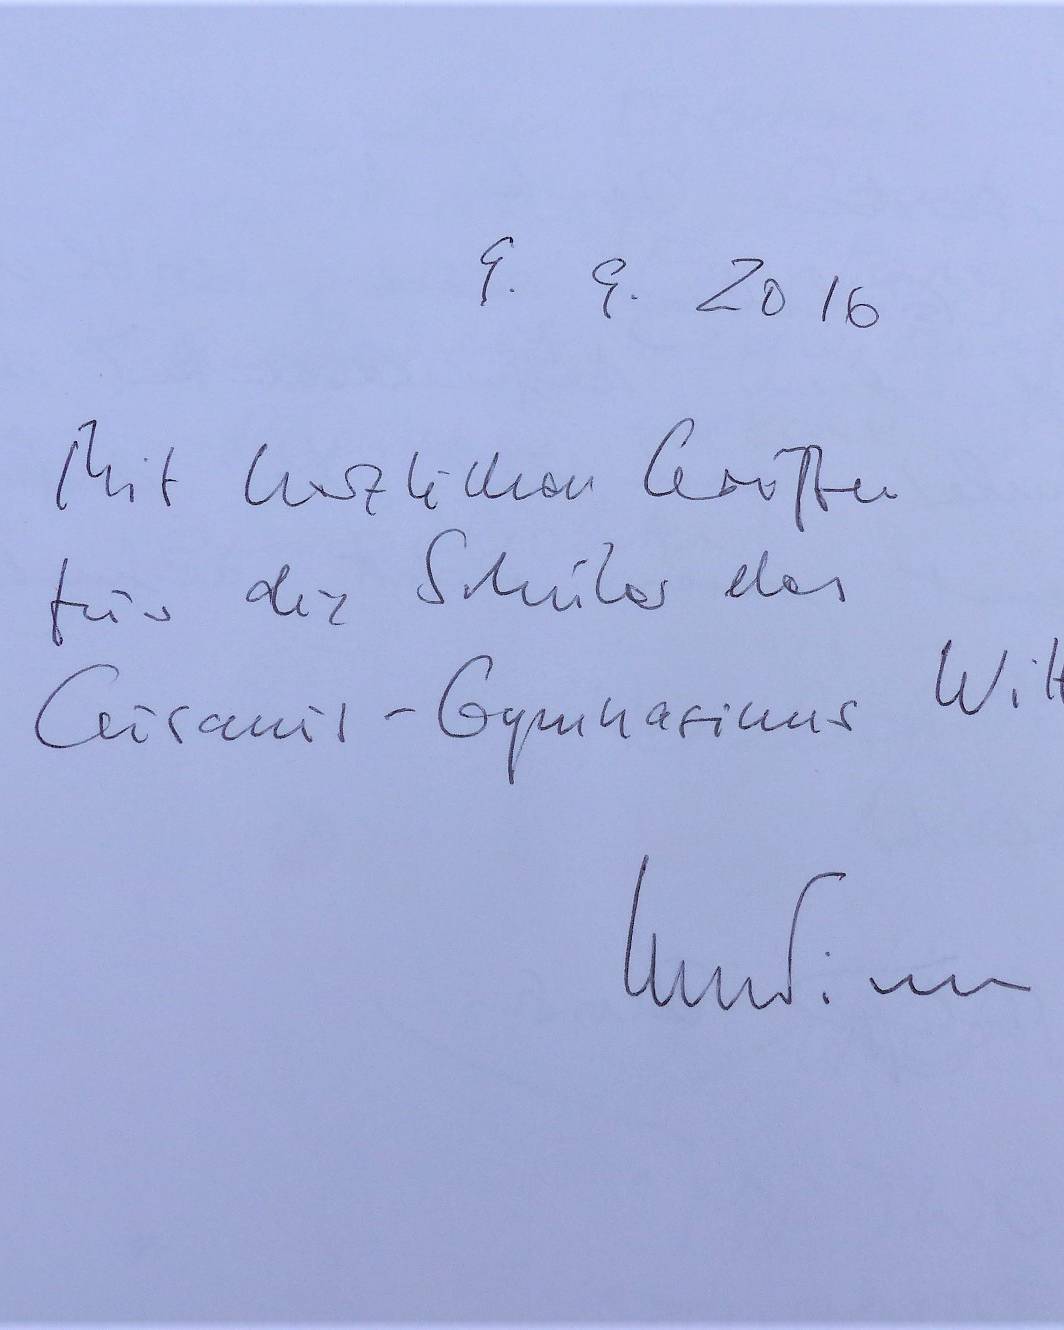 9. 9. 2016
Mit herzlichen Grüßen
für die Schüler des
Ceisanis-Gymnasiums Witt